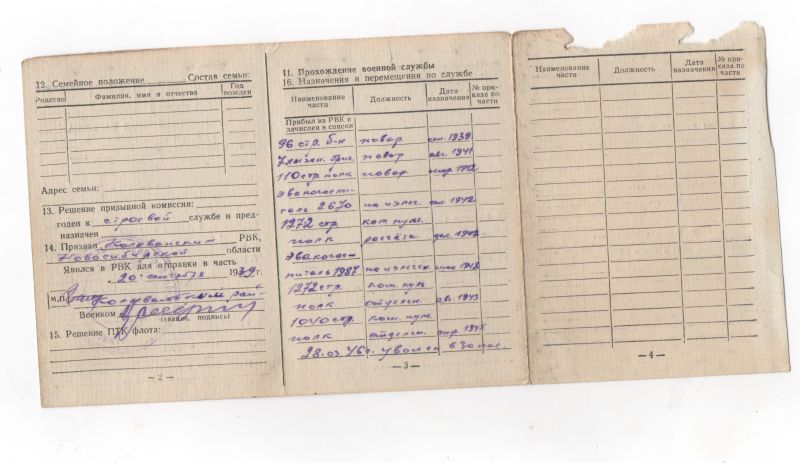 12. Семейное положение Состав семьи:
Родство Фамилия, имя и отчество Год рожден
Адрес семьи:
13. Решение призывной комиссии:
годен к строевой службе и пред-
назначен
14. Призван РВК,
Новосибирской области
Явился в РВК для отправки в часть
„20" сентября 1939г.
м.п.
Военком
(звание, подпись)
15. Решение ПТК флота:
— 2 —
II. Прохождение военной службы
16. Назначения и перемещения по службе
Наименование части Должность Дата назначения № приказа по части
Прибыл из РВК и
зачислен в списки
96 стр. б-н повар сен. 1939
7 лыжн. бриг. повар авг. 1941
110 стр. полк повар 1942
Эвакогоспи-
таль 2670 на излеч. 1942
1272 стр. ком. пул.
полк расчёта дек. 1942
Эвакогос-
питаль 1987 на излечен.
1272 стр. ком. пул.
полк отделен. ав. 1943
1040 стр. ком. пул.
полк отделен. апр. 1945
28.03.46г. уволен в запас.
— 3 —
Наименование части Должность Дата назначения № приказа по части
— 4 —